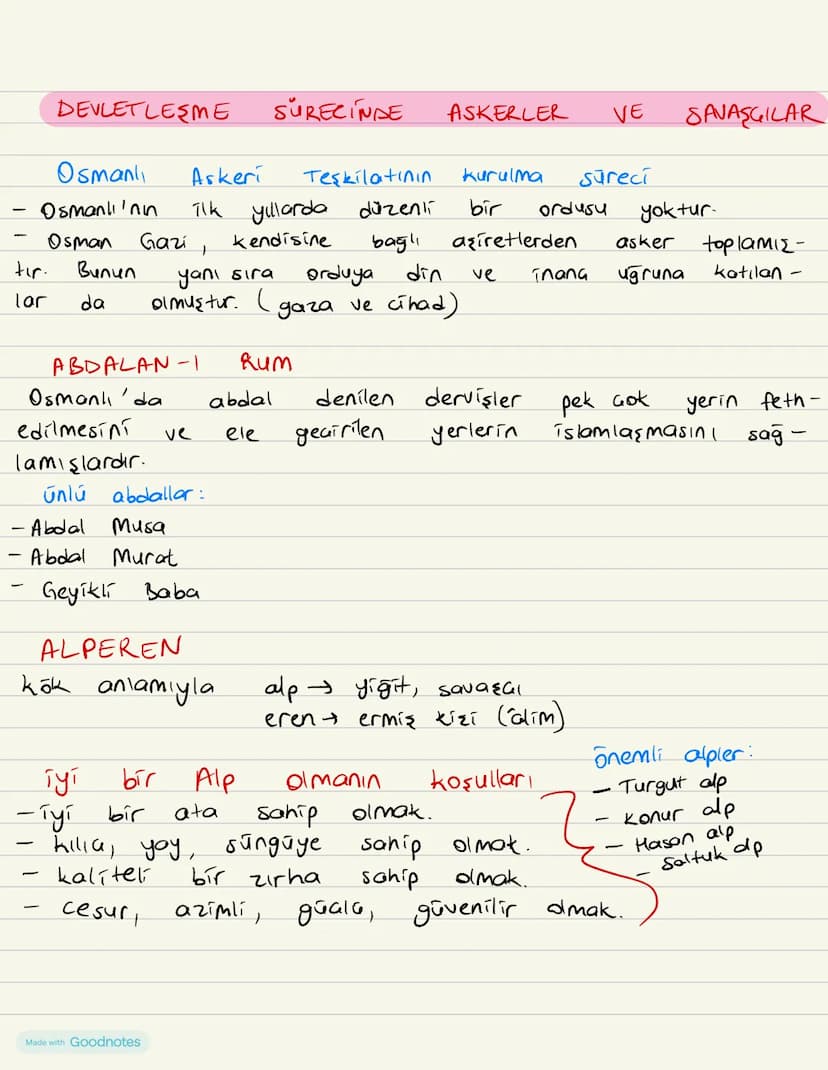 DEVLETLEŞME SÜRECİNDE ASKERLER VE SAVAŞÇILAR
Osmanlı Askeri Teşkilatının kurulma süreci
- Osmanlı'nın ilk yıllarda düzenli bir ordusu yoktur.
- Osman Gazi, kendisine bağlı aşiretlerden asker toplamış-
tır. Bunun yanı sıra orduya din ve inanç uğruna katılan-
lar da olmuştur. (gaza ve cihad)
ABDALAN-I RUM
Osmanlı'da abdal denilen dervişler pek çok yerin feth-
edilmesini ve ele geçirilen yerlerin islamlaşmasını sağ-
lamışlardır.
ünlü abdallar:
- Abdal Musa
- Abdal Murat
- Geyikli Baba
ALPEREN
kök anlamıyla alp → yiğit, savaşçı
eren → ermiş kişi (âlim)
iyi bir Alp olmanın koşulları
- iyi bir ata sahip olmak.
- kılıç, yay, süngüye sahip olmak.
- kaliteli bir zırha sahip olmak.
- cesur, azimli, güçlü, güvenilir olmak.
önemli alpler:
- Turgut alp
- Konur alp
- Hasan alp
- Saltuk alp
Made with Goodnotes